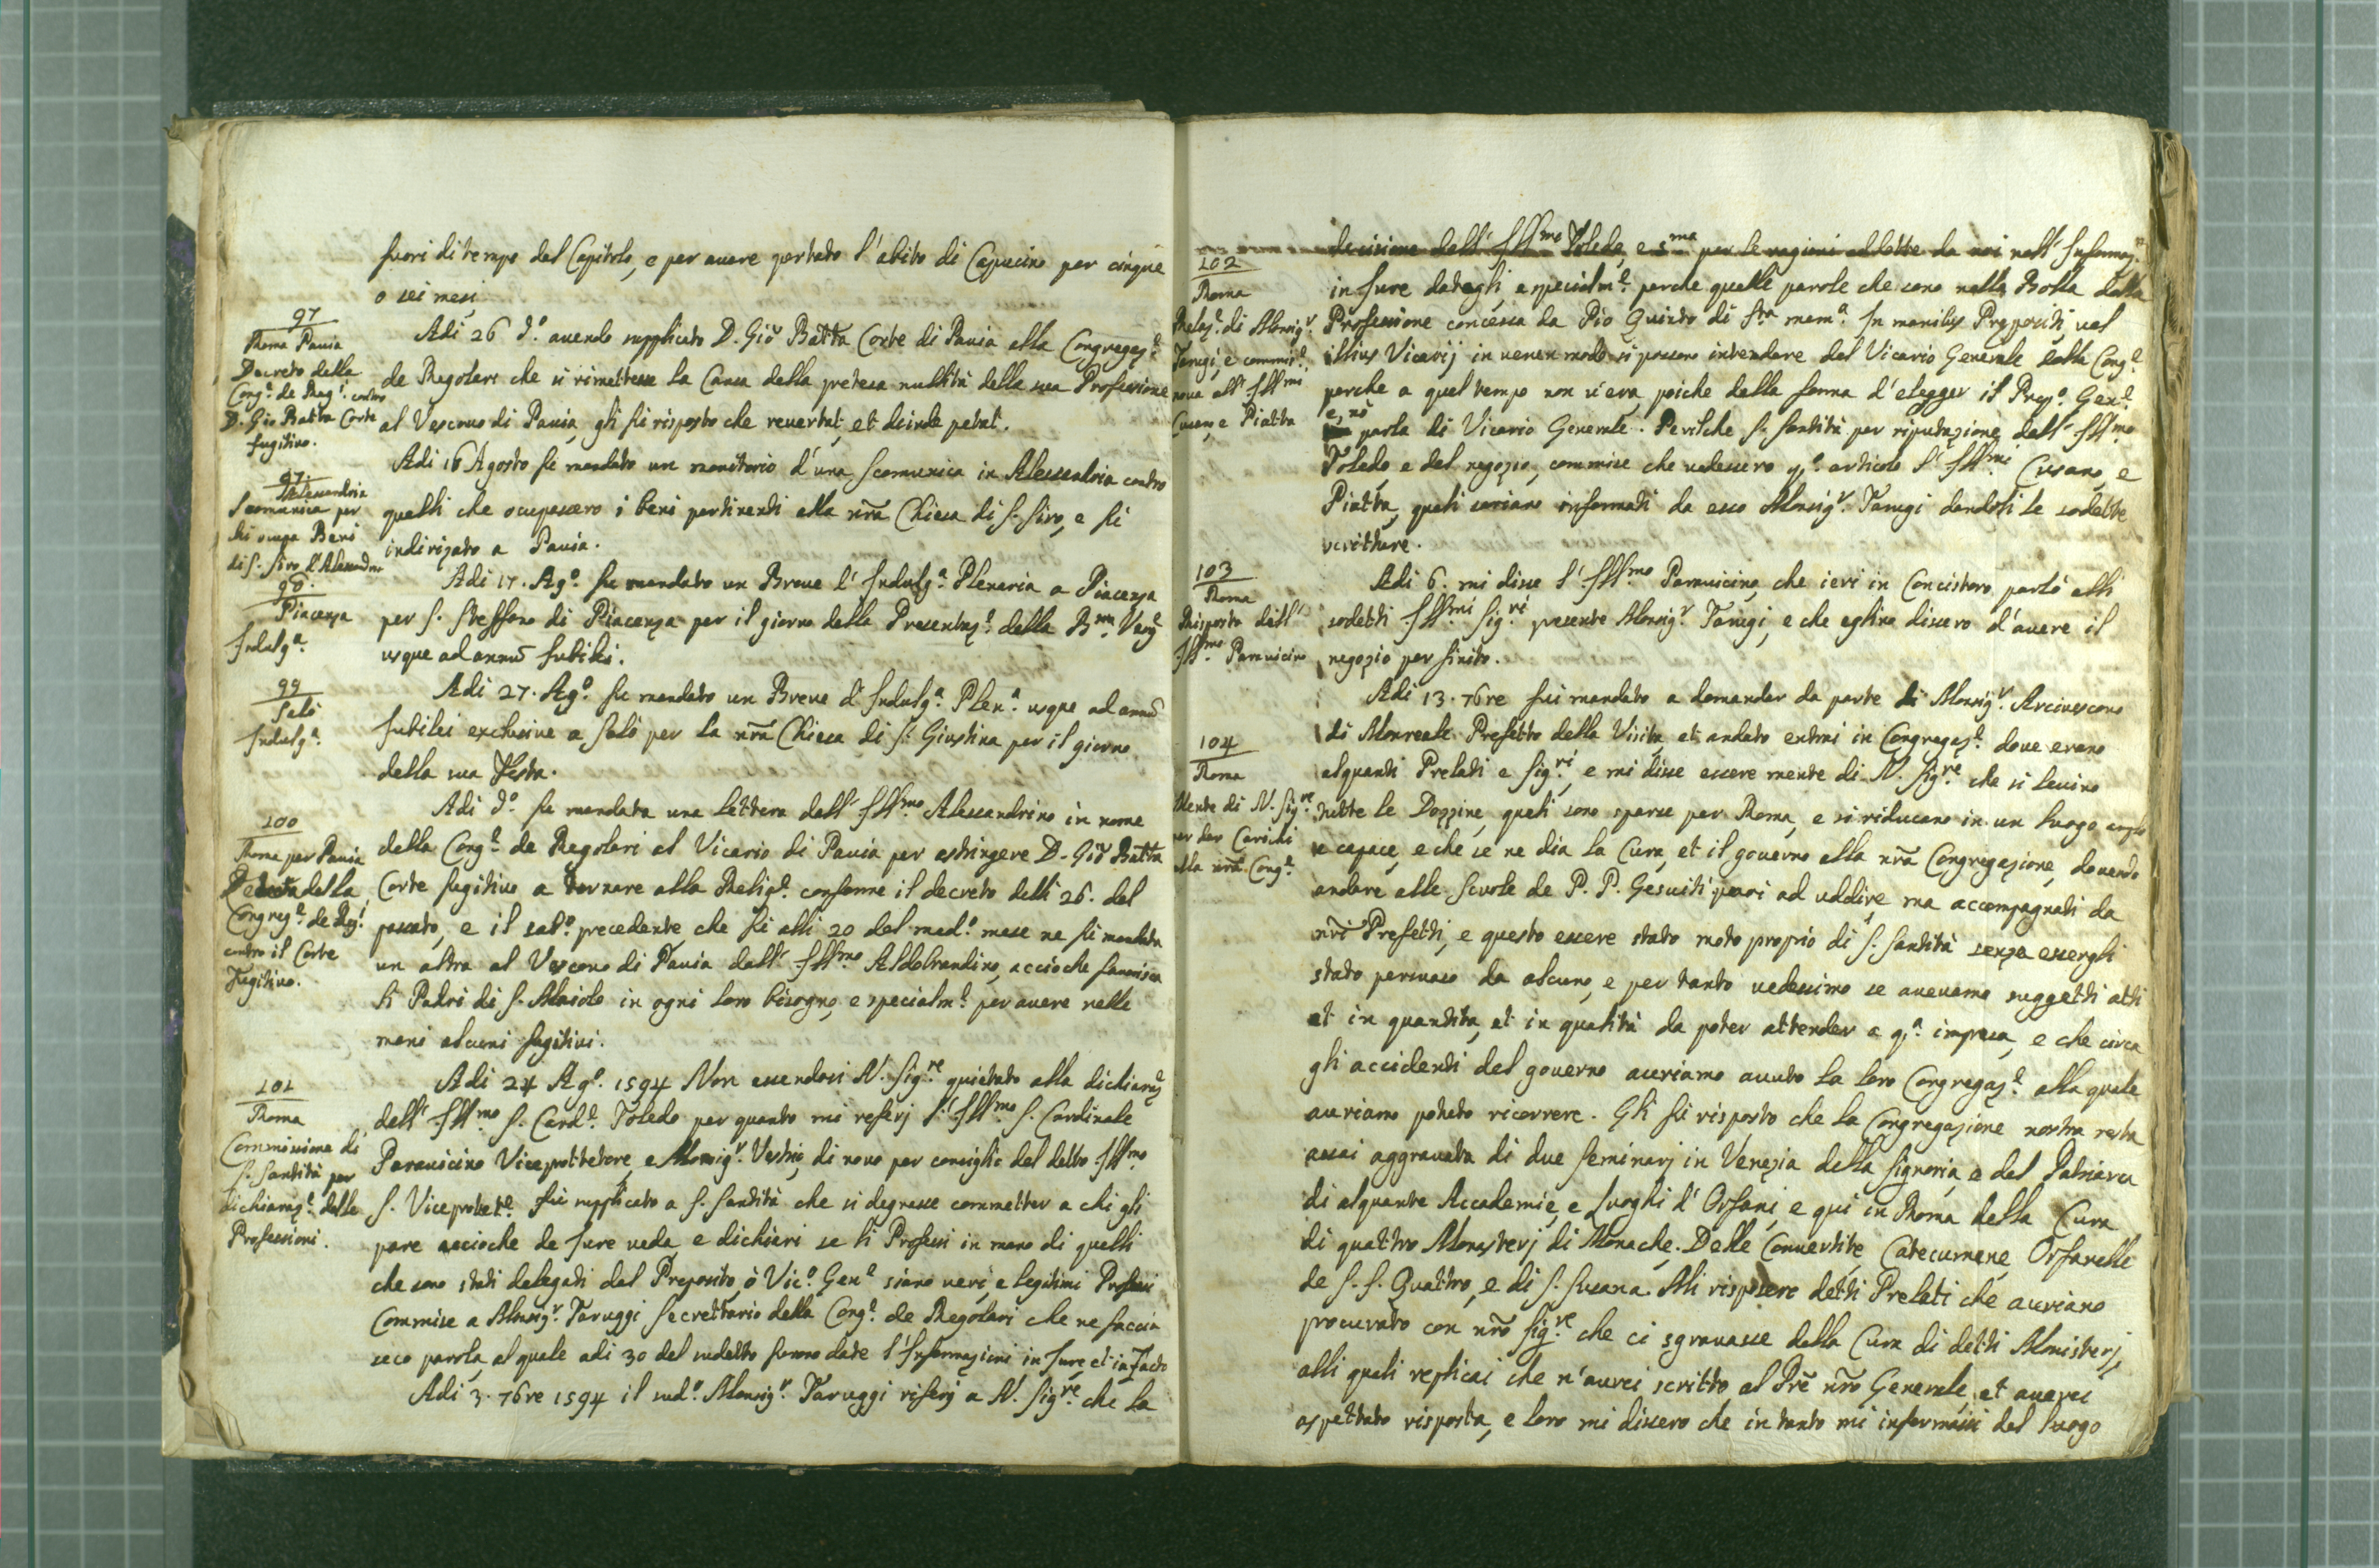 fuori di tempo del Capitolo, e per auere portato l'abito di Capucino per cinque
o sei mesi
97
Roma Pauia
Decreto della
Cong.e de Reg.i contro
D. Gio Batta Corte
fugitiuo.
Adi 26 d.o auendo supplicato D. Gio Batta Corte di Pauia alla Congregaz.e
de Regolari che si rimettesse la Causa della pretesa nullità della sua Professione
al Vescouo di Pauia, gli fu risposto che reuertat, et deinde petat.
97.
Alessandria
Scomunica per
chi occupa Beni
di S. Siro d'Alessandria
Adi 16 Agosto fu mandato un monitorio d'una scomunica in Alessandria contro
quelli che ocupassero i beni pertinenti alla nrã Chiesa di S. Siro, e fu
indirizato a Pauia.
98.
Piacenza
Indulg.a
Adi 17. Ag.o fu mandato un Breue d'Indulg.a Plenaria a Piacenza
per S. Steffano di Piacenza per il giorno della Presentaz.e della B.ma Verg.e
usque ad annũ Jubilei.
99
Salò
Indulg.a
Adi 27. Ag.o fu mandato un Breue d'Indulg.a Plen.a usque ad annũ
Jubilei exclusiue a Salò per la nrã Chiesa di S. Giustina per il giorno
della sua Festa.
100
Roma per Pauia
della
Congreg.e de Reg.i
contro il Corte
Fugitiuo.
Adi d.o fu mandata una lettera dell' Ill.mo Alessandrino in nome
della Cong.e de Regolari al Vicario di Pauia per astringere D. Gio Batta
Corte fugitiuo a tornare alla Relig.e conforme il decreto delli 26. del
passato, e il sab.o precedente che fu alli 20 del med.o mese ne fu mandata
un altra al Vescouo di Pauia dall' Ill.mo Aldobrandino, accioche fauorisca
li Padri di S. Maiolo in ogni loro bisogno, e specialm.e per auere nelle
mani alcuni fugitiui.
101
Roma
Commissione di
S. Santità per
dichiaraz.e delle
Professioni.
Adi 24 Ag.o 1594 Non essendosi N. Sig.re quietato alla dichiaraz.e
dell' Ill.mo S. Card.e Toledo per quanto mi referj l'Ill.mo S. Cardinale
Parauicino Viceprottetore, e Monsig.r Vestrio, di nouo per consiglio del detto Ill.mo
S. Viceprotet.e fu supplicato a S. Santità che si degnasse commetter a chi gli
pare accioche de Jure ueda, e dichiari se li Professi in mano di quelli
che sono stati delegati dal Preposito, ò Vic.o Gen.e siano ueri, e legitimi Professi
Commise a Monsig.r Taruggi Secrettario della Cong.e de Regolari che ne faccia
seco parola, al quale adi 30 del sudetto furono date l'Informazioni in Jure, et in Facto
Adi 3. 7bre 1594 il sud.o Monsig.r Taruggi riferj a N. Sig.re che la
decisione dell' Ill.mo Toledo, e s.ma per le ragioni addotte da noi nell' Informaz.e
102
Roma
Relaz.e di Monsig.r
Tarugi, e commis.e
noua all' Ill.mi
Cusano, e Piatta
in Jure dategli, e specialm.e perche quelle parole che sono nella Bolla della
Professione concessa da Pio Quinto di S.ta mem.a In manibus Prepositi, uel
illius Vicarij in uerun modo si possono intendere del Vicario Generale della Cong.e
perche a quel tempo non u'era, poiche della forma d'elegger il Prep.o Gen.e
e, nõ
parla di Vicario Generale. Perilche S. Santità per riputazione dell' Ill.mo
Toledo e del negozio, commise che uedessero q.o articolo l'Ill.mi Cusano, e
Piatta, quali sariano informati da esso Monsig.r Tarugi dandosi le sodette
scritture.
103
Roma
Risposta dell'
Ill.mo Parauicino
Adi 6. mi disse l'Ill.mo Parauicino, che ieri in Concistoro parlò alli
sodetti Ill.mi Sig.ri presente Monsig.r Tarugi, e che eglino dissero d'auere il
negozio per finito.
104
Roma
Mente di N. Sig.re
per dar Carichi
alla nrã Cong.e
Adi 13. 7bre fui mandato a domandar da parte di Monsig.r Arciuescouo
di Monreale Prefetto della Visita, et andato entrai in Congregaz.e doue erano
alquanti Prelati e Sig.ri, e mi disse essere mente di N. Sig.re che si leuino
tutte le Dozzine, quali sono sparse per Roma, e si riducano in un luogo amplo
e capace, e che se ne dia la Cura, et il gouerno alla nrã Congregazione, douendo
andare alle Scuole de P. P. Gesuiti putti ad uddire, ma accompagnati da
nrĩ Prefetti, e questo essere stato moto proprio di S. Santità senza essergli
stato persuaso da alcuno, e per tanto uedessimo se aueuamo suggetti atti
et in quantità, et in qualità da poter attender a q.a impresa, e che circa
gli accidenti del gouerno auriamo auuto la loro Congregaz.e alla quale
auriamo potuto ricorrere. Gli fu risposto che la Congregazione nostra resta
assai aggrauata di due Seminarj in Venezia della Signoria, e del Patriarca
di alquante Accademie, e Luoghi d'Orfani, e qui in Roma della Cura
di quattro Monasterj di Monache. Delle Conuertite, Catecumene, Orfanelle
de S. S. Quattro, e di S. Susana. Mi risposero detti Prelati che auriano
procurato con nrõ Sig.re che ci sgrauasse della Cura di detti Monisterj,
alli quali replicai che n'aurei scritto al Prẽ nrõ Generale, et auerei
aspettato risposta, e loro mi dissero che in tanto mi informassi del luogo